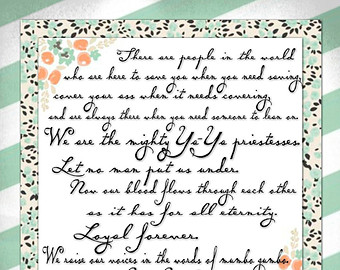 There are people in the world
who are here to save you when you need saving,
cover your ass when it needs covering,
and are always there when you need someone to lean on.
We are the mighty Ya-Ya priestesses.
Let no man put us under.
Now our blood flows through each other
as it has for all eternity.
Loyal forever.
We raise our voices in the words of mumbo gumbo.